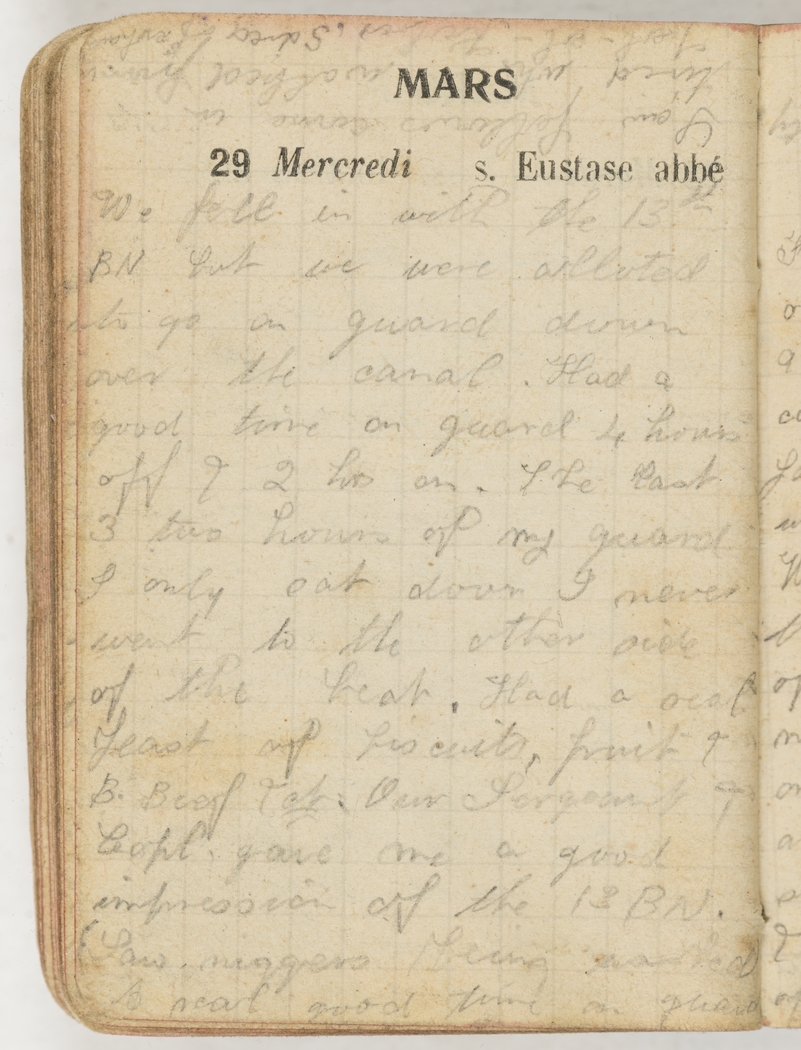 MARS
29 Mercredi s. Eustase abbé
We fell in with the 13th
BN but we were alloted
to go on guard down
over the canal. Had a
good time on guard 4 hours
off & 2 hrs on. The last
3 two hours of my guard
I only sat down I never
went to the other side
of the beat. Had a real
feast of biscuits, fruit &
B. Beef &ct. Our Sergeant &
Corpl. gave me a good
impression of the 13 BN.
(Saw niggers being
A real good time on guard